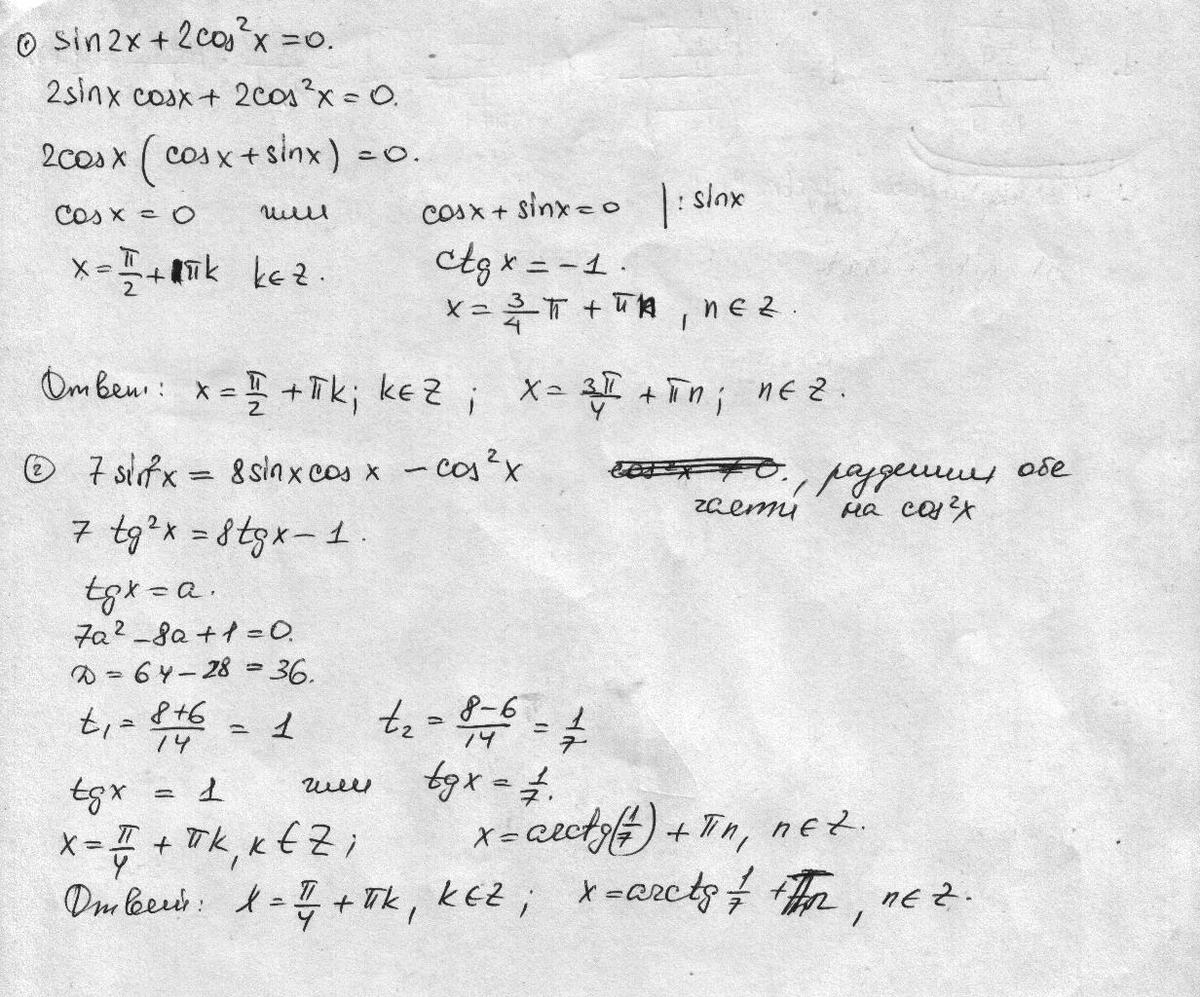 ① sin2x + 2cos²x = 0.
2sinx cosx + 2cos²x = 0.
2cosx (cosx + sinx) = 0.
cosx = 0 или cosx + sinx = 0 |: sinx
x = π/2 + πk k∈Z. ctgx = -1.
x = 3/4 π + πn, n∈Z.
Ответ: x = π/2 + πk; k∈Z ; x = 3π/4 + πn; n∈Z.
② 7sin²x = 8sinxcosx - cos²x cos²x ≠ 0., разделим обе
части на cos²x
7 tg²x = 8tgx - 1.
tgx = a.
7a² - 8a + 1 = 0.
D = 64 - 28 = 36.
t₁ = 8+6/14 = 1 t₂ = 8-6/14 = 1/7
tgx = 1 или tgx = 1/7.
x = π/4 + πk, k∈Z; x = arctg(1/7) + πn, n∈Z.
Ответ: x = π/4 + πk, k∈Z ; x = arctg 1/7 + πn, n∈Z.